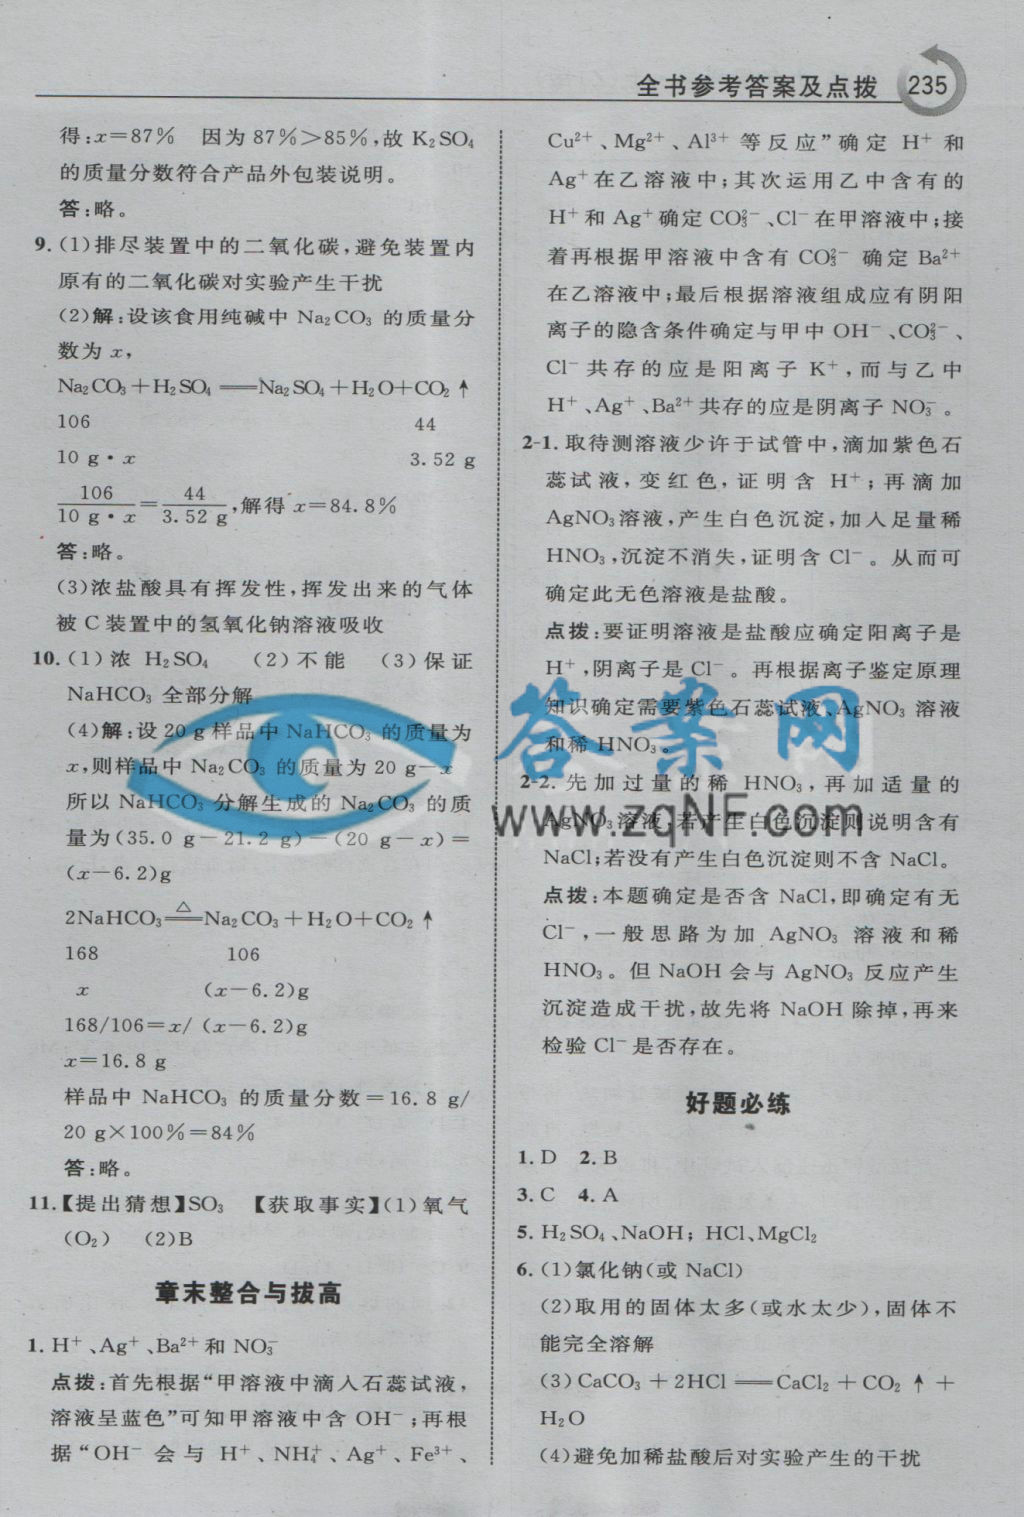 全书参考答案及点拨 235
得:x=87% 因为87%>85%,故K₂SO₄
的质量分数符合产品外包装说明。
答:略。
9.(1)排尽装置中的二氧化碳,避免装置内
原有的二氧化碳对实验产生干扰
(2)解:设该食用纯碱中Na₂CO₃的质量分
数为x,
Na₂CO₃+H₂SO₄══Na₂SO₄+H₂O+CO₂↑
106 44
10 g·x 3.52 g
106/10 g·x=44/3.52 g,解得x=84.8%
答:略。
(3)浓盐酸具有挥发性,挥发出来的气体
被C装置中的氢氧化钠溶液吸收
10.(1)浓 H₂SO₄ (2)不能 (3)保证
NaHCO₃全部分解
(4)解:设20 g样品中NaHCO₃的质量为
x,则样品中Na₂CO₃的质量为20 g-x
所以NaHCO₃分解生成的Na₂CO₃的质
量为(35.0 g-21.2 g)-(20 g-x)=
(x-6.2)g
2NaHCO₃══△Na₂CO₃+H₂O+CO₂↑
168 106
x (x-6.2)g
168/106=x/(x-6.2)g
x=16.8 g
样品中NaHCO₃的质量分数=16.8 g/
20 g×100%=84%
答:略。
11.【提出猜想】SO₃ 【获取事实】(1)氧气
(O₂) (2)B
章末整合与拔高
1. H⁺、Ag⁺、Ba²⁺和NO₃⁻
点拨:首先根据“甲溶液中滴入石蕊试液,
溶液呈蓝色”可知甲溶液中含OH⁻;再根
据“OH⁻会与H⁺、NH₄⁺、Ag⁺、Fe³⁺、
Cu²⁺、Mg²⁺、Al³⁺等反应”确定H⁺和
Ag⁺在乙溶液中;其次运用乙中含有的
H⁺和Ag⁺确定CO₃²⁻、Cl⁻在甲溶液中;接
着再根据甲溶液中含有CO₃²⁻确定Ba²⁺
在乙溶液中;最后根据溶液组成应有阴阳
离子的隐含条件确定与甲中OH⁻、CO₃²⁻、
Cl⁻共存的应是阳离子K⁺,而与乙中
H⁺、Ag⁺、Ba²⁺共存的应是阴离子NO₃⁻。
2-1.取待测溶液少许于试管中,滴加紫色石
蕊试液,变红色,证明含H⁺;再滴加
AgNO₃溶液,产生白色沉淀,加入足量稀
HNO₃,沉淀不消失,证明含Cl⁻。从而可
确定此无色溶液是盐酸。
点拨:要证明溶液是盐酸应确定阳离子是
H⁺,阴离子是Cl⁻。再根据离子鉴定原理
知识确定需要紫色石蕊试液、AgNO₃溶液
和稀HNO₃。
2-2.先加过量的稀HNO₃,再加适量的
AgNO₃溶液,若产生白色沉淀则说明含有
NaCl;若没有产生白色沉淀则不含NaCl。
点拨:本题确定是否含NaCl,即确定有无
Cl⁻,一般思路为加AgNO₃溶液和稀
HNO₃。但NaOH会与AgNO₃反应产生
沉淀造成干扰,故先将NaOH除掉,再来
检验Cl⁻是否存在。
好题必练
1. D 2. B
3. C 4. A
5. H₂SO₄、NaOH; HCl、MgCl₂
6.(1)氯化钠(或NaCl)
(2)取用的固体太多(或水太少),固体不
能完全溶解
(3)CaCO₃+2HCl══CaCl₂+CO₂↑+
H₂O
(4)避免加稀盐酸后对实验产生的干扰
答案网
www.zqNF.com